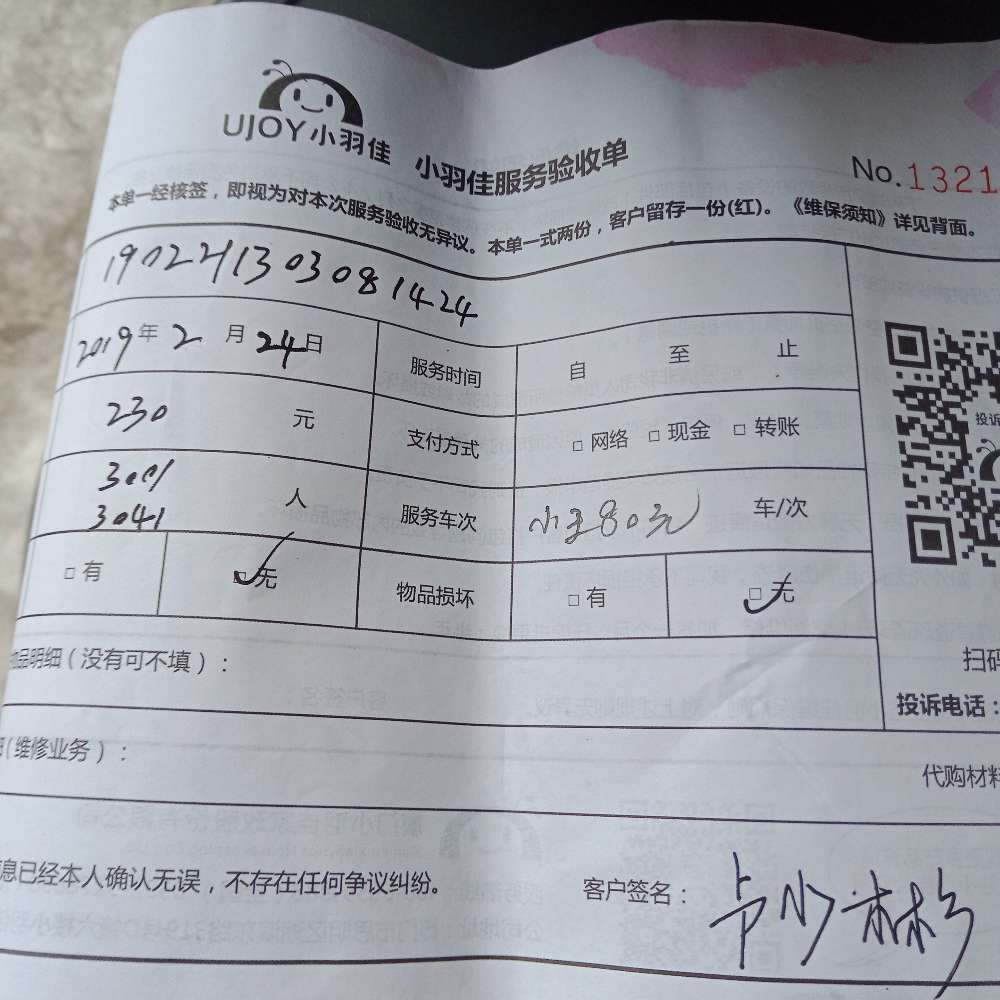 UJOY小羽佳 小羽佳服务验收单
No.1321
本单一经核签，即视为对本次服务验收无异议。本单一式两份，客户留存一份(红)。《维保须知》详见背面。
190221303081424
2019年2月24日 服务时间 自 至 止
230 元 支付方式 □网络 □现金 □转账
3001
3041 人 服务车次 小王80元 车/次
□有 无 物品损坏 □有 □无
品明细（没有可不填）：
扫码
投诉电话：
（维修业务）：
代购材料
息已经本人确认无误，不存在任何争议纠纷。 客户签名：
投诉